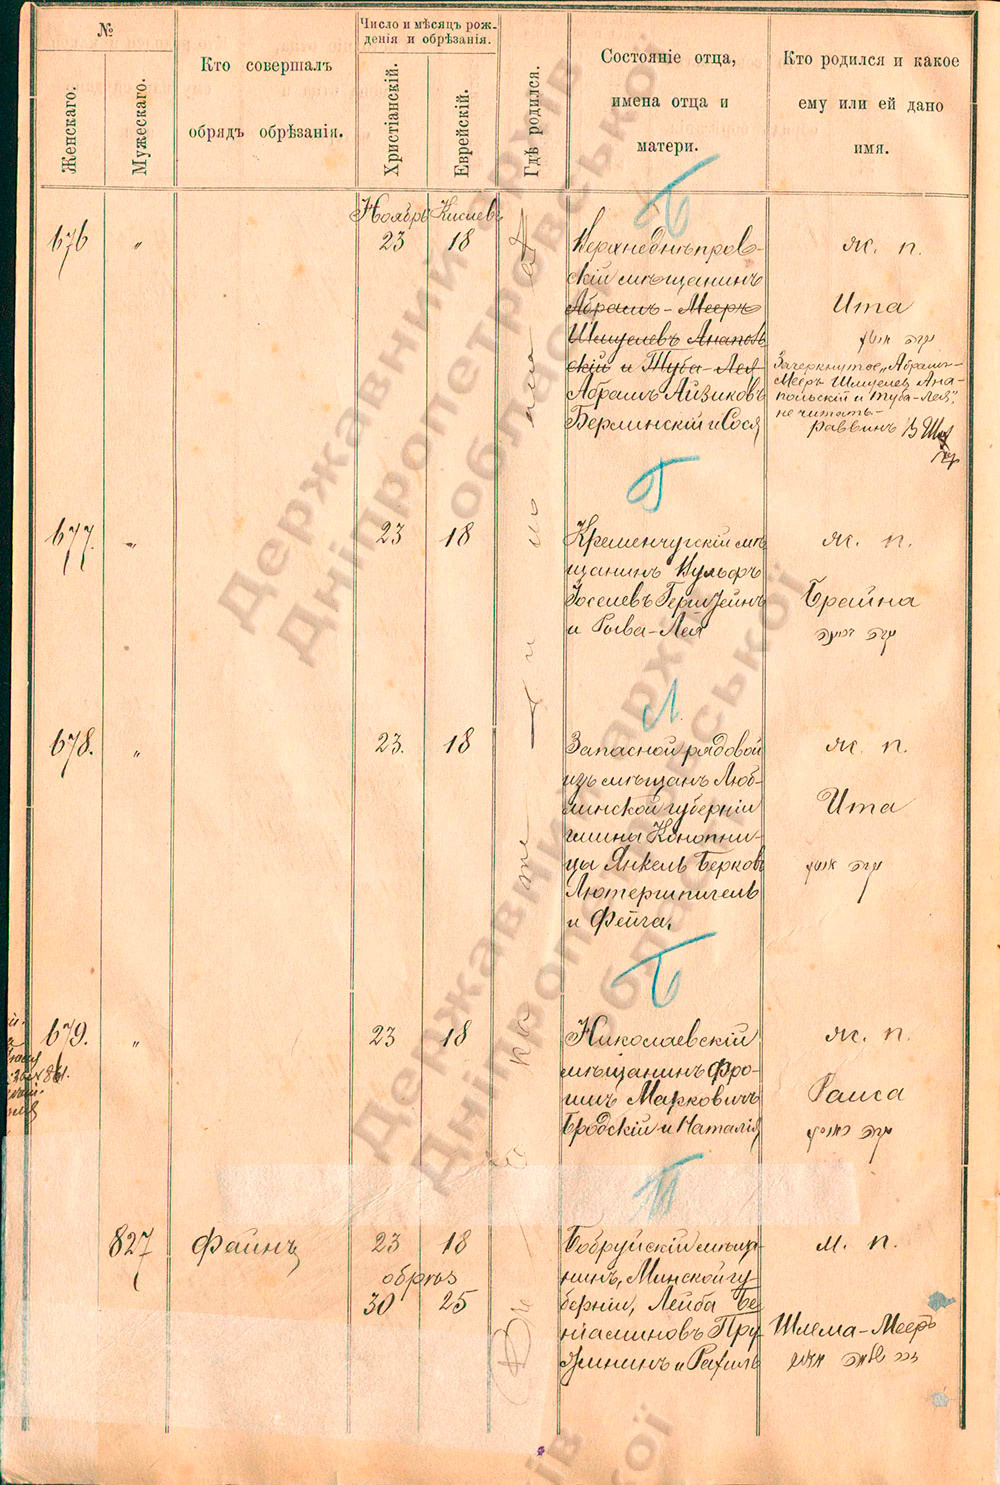 №
Женскаго.
Мужескаго.
Кто совершалъ
обрядъ обрѣзанія.
Число и мѣсяцъ рож-
денія и обрѣзанія.
Христіанскій.
Еврейскій.
Гдѣ родился.
Состояніе отца,
имена отца и
матери.
Кто родился и какое
ему или ей дано
имя.
Ноябрь Кислевъ
Б
676 „ 23 18
Верхнеднѣпров-
скій мѣщанинъ
Абрамъ-Мееръ
Шмуелевъ Анаполь
скій и Туба-Лея
Абрамъ Айзиковъ
Берлинскій и Сося
ж. п.
Ита
Зачеркнутое „Абрамъ-
Мееръ Шмуелев Ана-
польскій и Туба-Лея",
не читать-
раввинъ
Г
677. „ 23 18
Кременчугскій мѣ
щанинъ Вульфъ
Іоселевъ Герштейнъ
и Рыва-Лея
ж. п.
Брайна
Л
678. „ 23. 18
Запасной рядовой
изъ мѣщанъ Люб-
линской губерніи
гмины Конопни-
цы Янкель Берковъ
Лютершпигель
и Фейга.
ж. п.
Ита
Б
679. „ 23 18
Николаевскій
мѣщанинъ Фро-
имъ Марковичъ
Бродскій и Наталія
ж. п.
Раиса
Т
827 Файнъ 23 18
обрѣз
30 25
Бобруйскій мѣща-
нинъ, Минской гу-
берніи, Лейба Бе
ніаминовъ Пру
и Рахиль
м. п.
Шлема-Мееръ
Державний архів
Дніпропетровської
області
Державний архів
Дніпропетровської
області